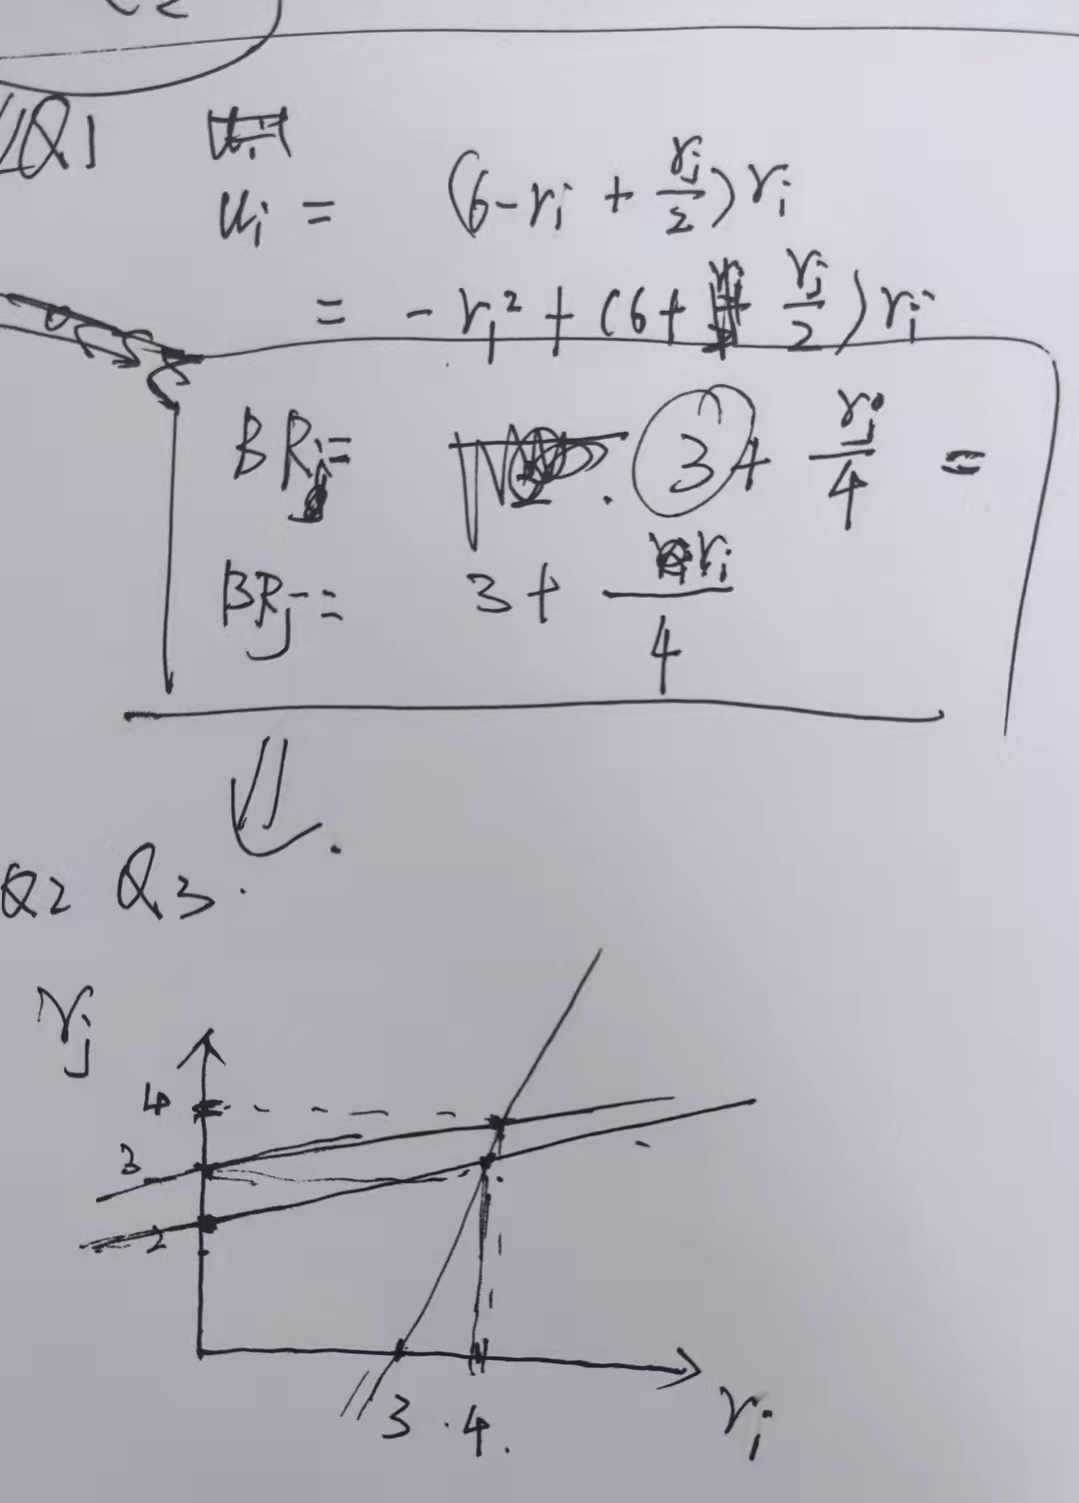 Q1
u_i = (6 - r_i + r_j/2) r_i
= - r_i² + (6 + r_j/2) r_i
BR_i = 3 + r_j/4 =
BR_j = 3 + r_i/4
⇓.
Q2 Q3.
r_j
4
3
2
3 . 4.
r_i